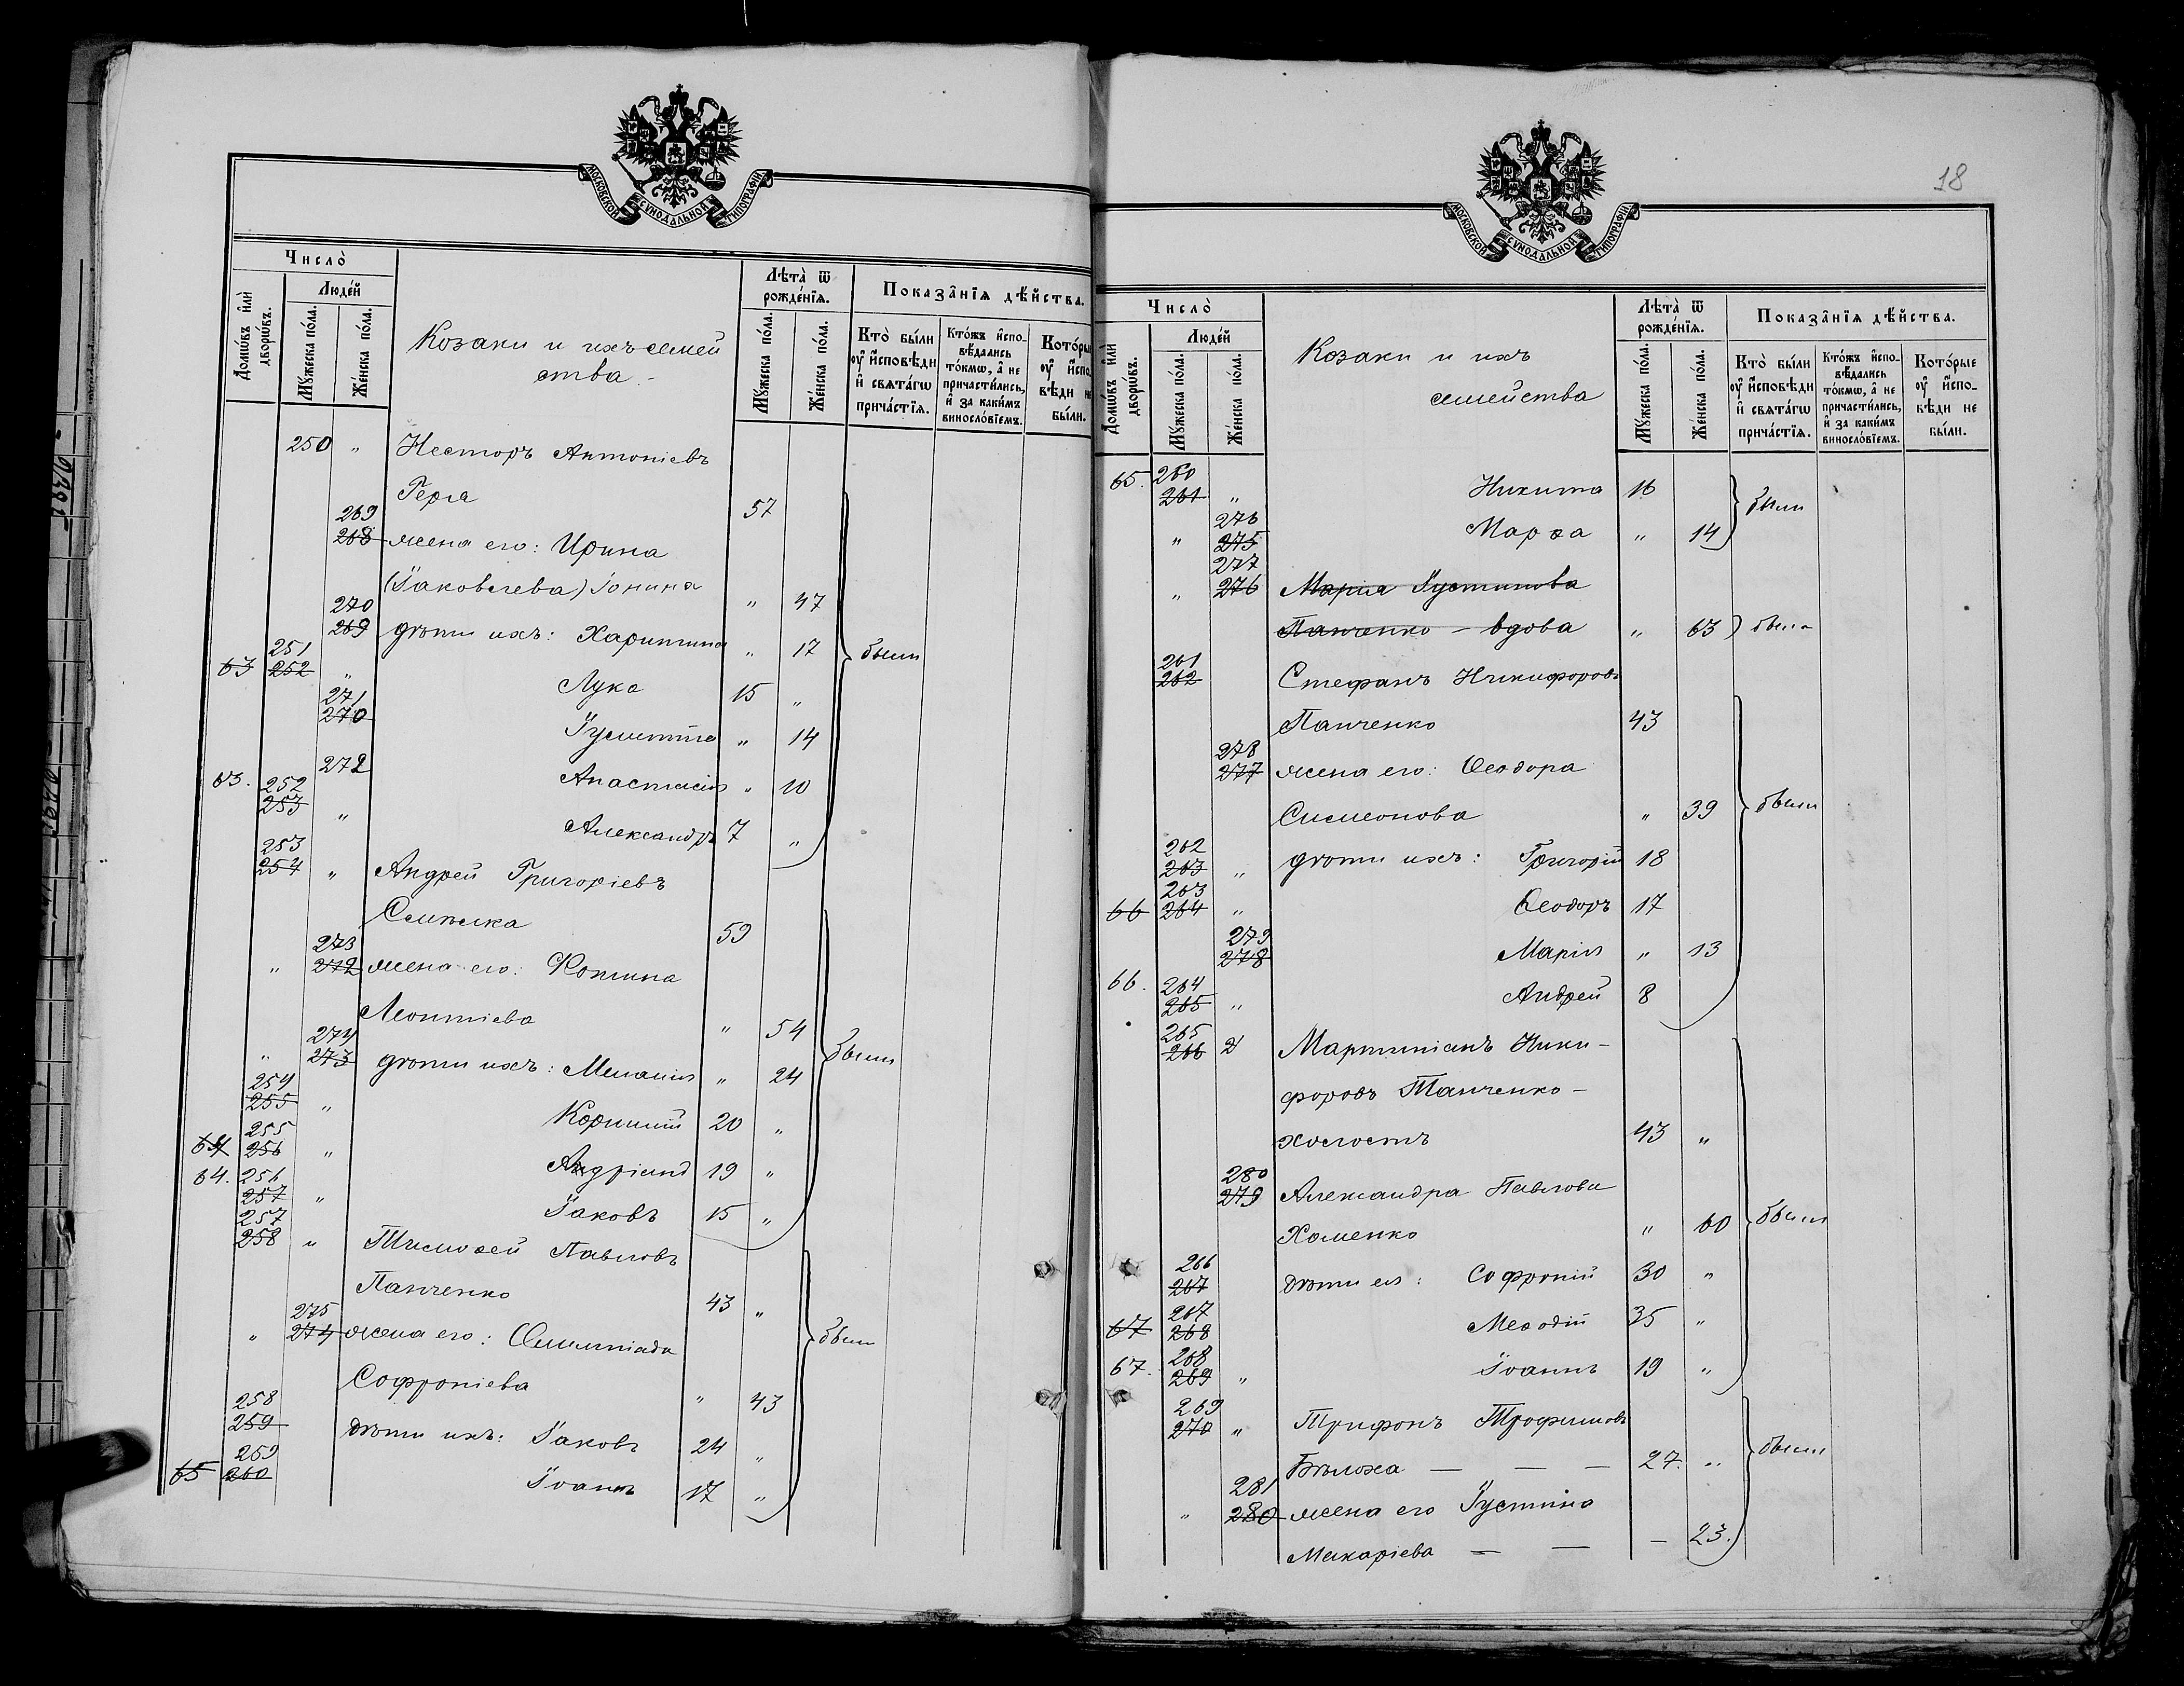 МОСКОВСКОЙ СѴНОДАЛЬНОЙ ТИПОГРАФІИ
Число̀
Домѡвъ и҆лѝ дворѡвъ.
Люде́й
Мꙋжеска по́ла.
Же́нска по́ла.
Козаки и ихъ семей
ства
Лѣта̀ ѿ рожде́нїѧ.
Мꙋжеска по́ла.
Же́нска по́ла.
Показа̂нїѧ дѣ́йства.
Кто̀ бы́ли оу҆ и҆сповѣди и҆ свѧта́гѡ прича́стїѧ.
Кто́жъ и҆спо-вѣдались то́кмѡ, а҆ не причасти́лись, и҆ за каки́мъ винословіемъ.
Которы
оу҆ и҆спо
вѣди не
бы́ли.
250 " Несторъ Антоніевъ
Герга 57
269
268 жена его: Ирина
(Іаковлева) Іонина " 47
270
269 дѣти ихъ: Харитина " 17 были
251
63 252 " Лука 15 "
271
270 Іустина " 14
272 Анастасія " 10
63. 252
253 " Александръ 7 "
253
254 " Андрей Григоріевъ
59
273
" 272 жена его: Фотина
Леонтіева " 54
274
" 273 дѣти ихъ: Меланія " 24 были
254
255 " Корнилій 20 "
255
64 256 " Андріанъ 19 "
64. 256
257 " Іаковъ 15 "
257
258 " Тимоѳей Павловъ
Панченко 43 "
275
" 274 жена его: Олимпіада были
Софроніева " 43
258
259 дѣти ихъ: Іаковъ 24 "
259
65 260 Іоаннъ 17 "
18
МОСКОВСКОЙ СѴНОДАЛЬНОЙ ТИПОГРАФІИ
Число̀
Домѡвъ и҆лѝ дворѡвъ.
Люде́й
Мꙋжеска по́ла.
Же́нска по́ла.
Козаки и ихъ
семейства
Лѣта̀ ѿ рожде́нїѧ.
Мꙋжеска по́ла.
Же́нска по́ла.
Показа̂нїѧ дѣ́йства.
Кто̀ бы́ли оу҆ и҆сповѣди и҆ свѧта́гѡ прича́стїѧ.
Кто́жъ и҆спо-вѣдались то́кмѡ, а҆ не причасти́лись, и҆ за каки́мъ винословіемъ.
Кото́рые оу҆ и҆спо-вѣди не бы́ли.
65. 260
261 " Никита 16 были
276
" 275 Марѳа " 14
277
" 276 Марія Іустинова
Панченко - вдова " 63 была
261
262 Стефанъ Никифоровъ
Панченко 43
278
277 жена его: Ѳеодора
Симеонова " 39 были
262
263 " дѣти ихъ: Григорій 18
263
66 264 " Ѳеодоръ 17
279
278 Марія " 13
66. 264
265 " Андрей 8
265
266 Мартиніанъ Ники-
форовъ Панченко -
холостъ 43 "
280
279 Александра Павлова
Хоменко " 60 были
266
267 дѣти ея: Софроній 30 "
267
67 268 Меѳодій 35 "
67. 268
269 " Іоаннъ 19 "
269
270 " Трифонъ Трофимовъ
Бѣлоха — — — 27. " были
281
" 280 жена его Іустина
Макаріева — — — 23.